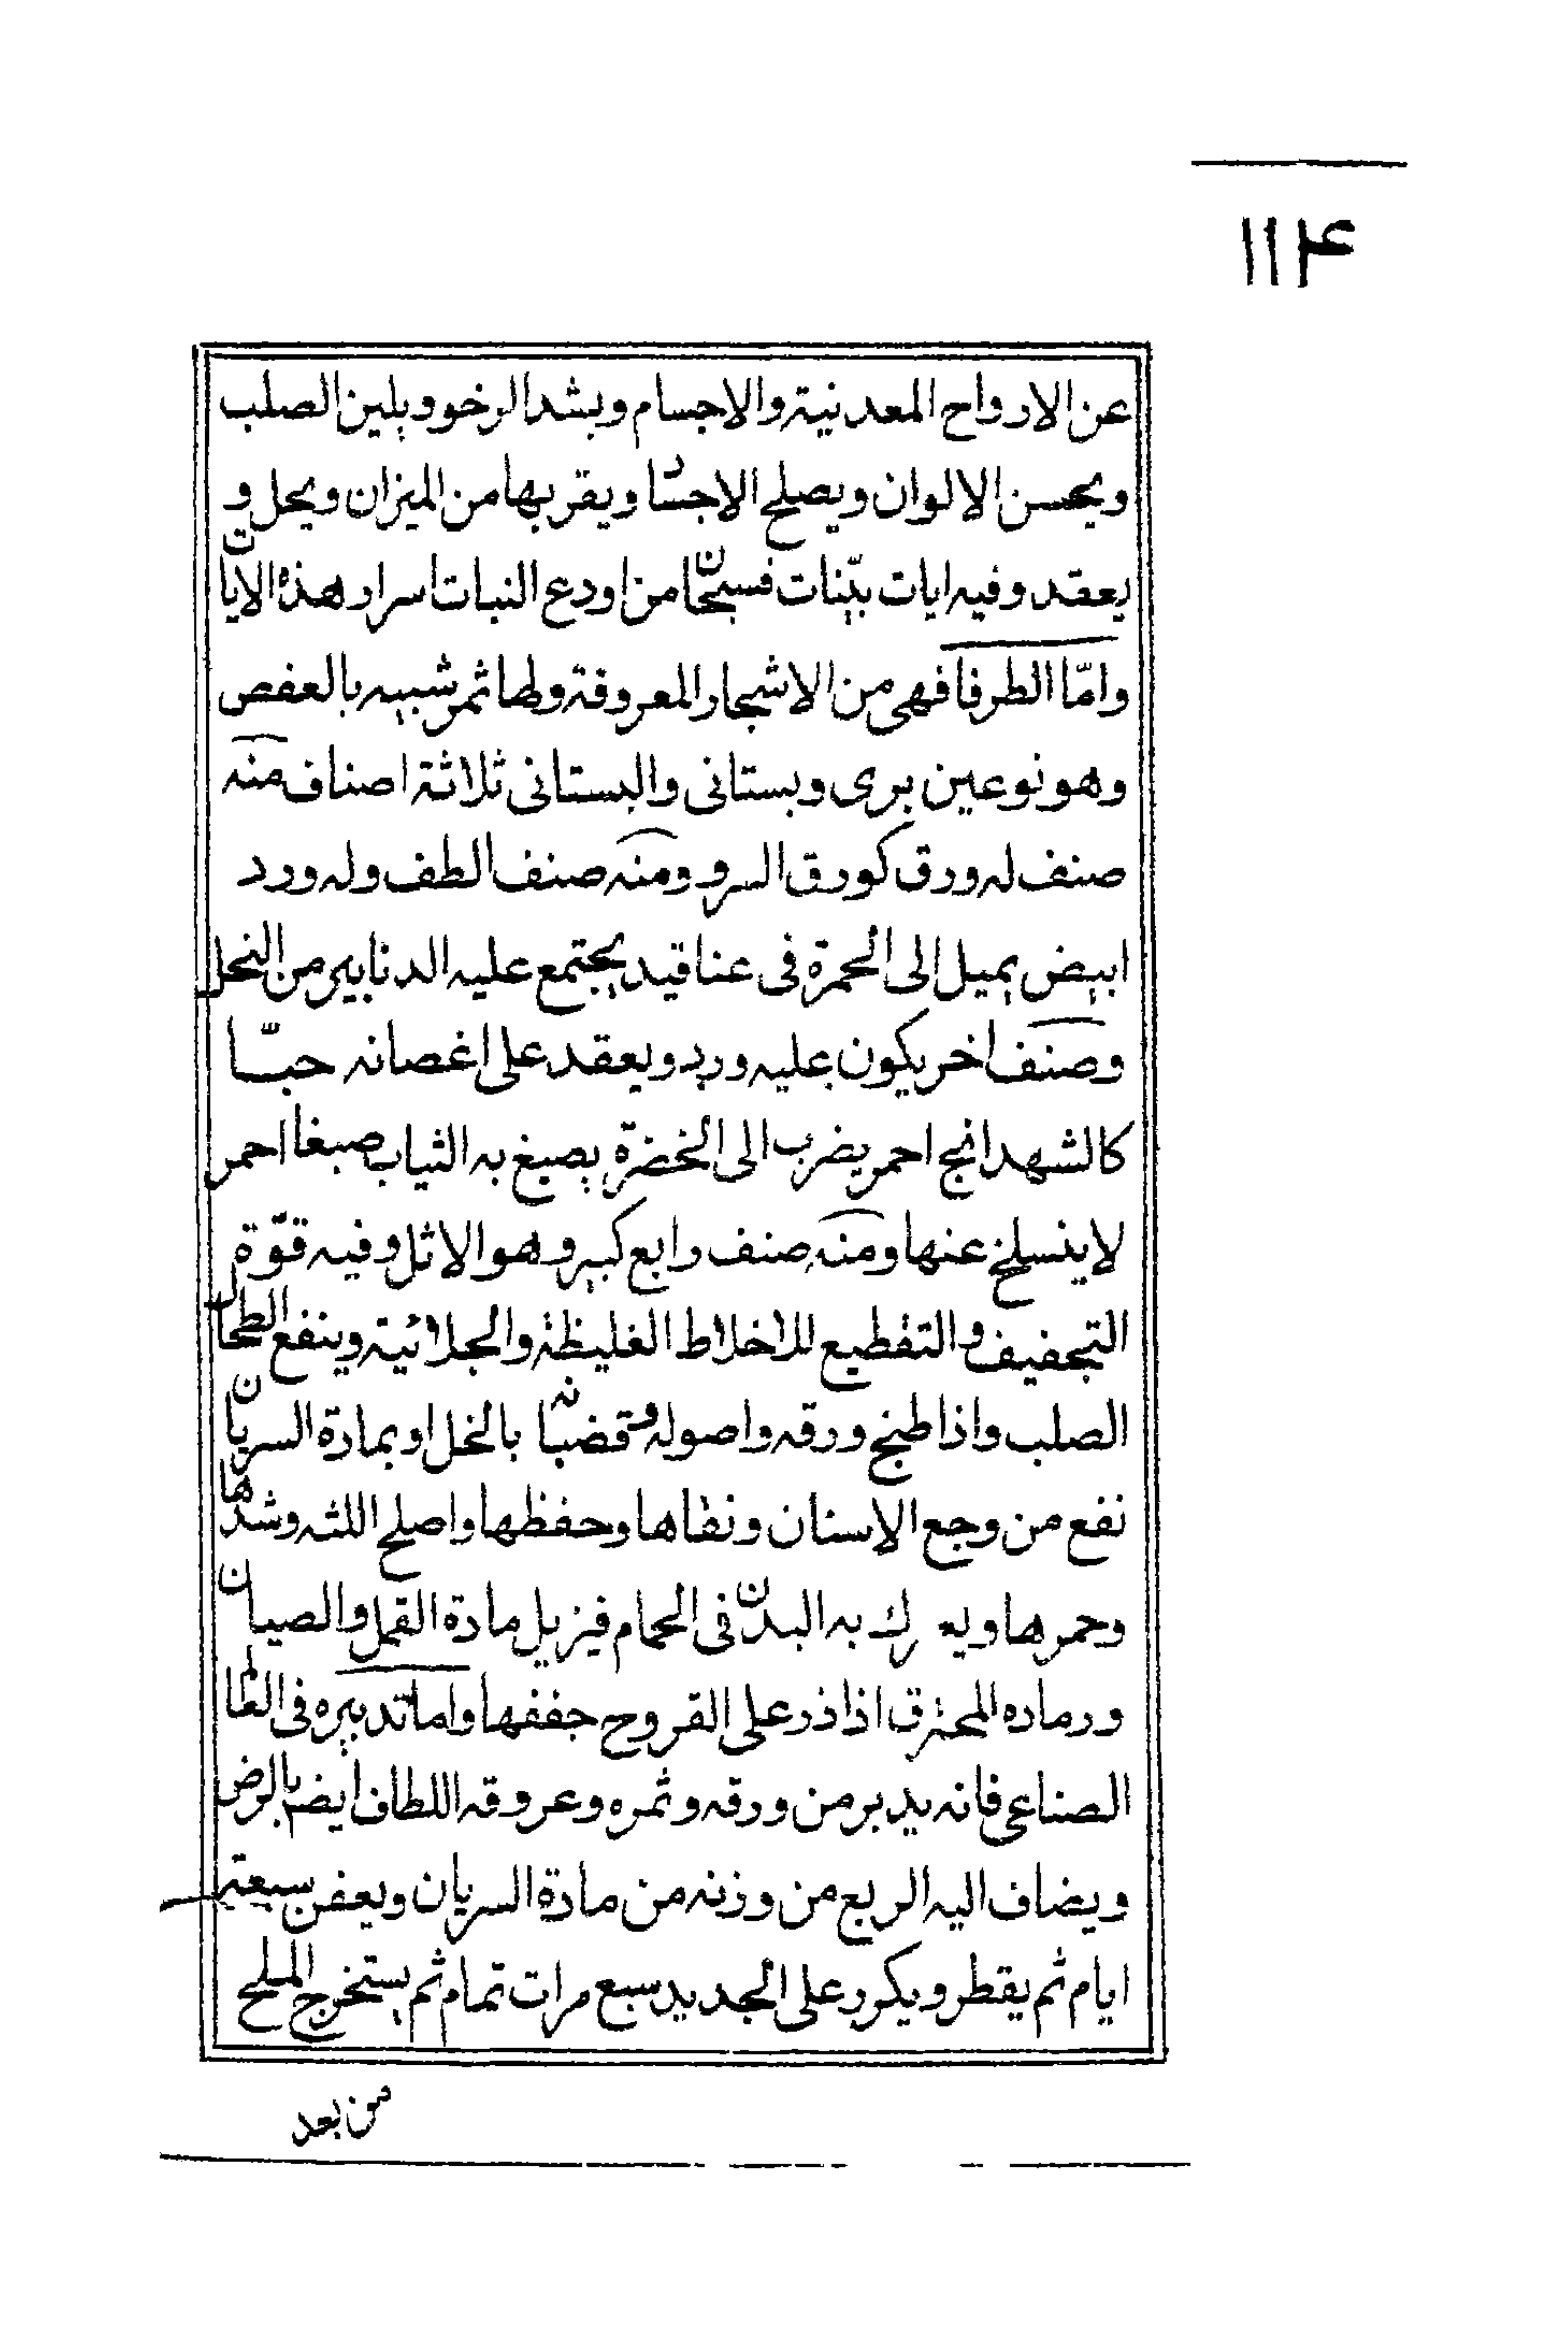 ١١۴
عن الارواح المعدنية والاجسام ويشد الرخو ويلين الصلب
ويحسن الالوان ويصلح الاجساد ويقربها من الميزان ويحل و
يعقد وفيه ايات بيّنات فسبحان من اودع النبات اسرار هذه الايات
وامّا الطرفا فهى من الاشجار المعروفة ولها ثمر شبيه بالعفص
وهو نوعين برى وبستانى والبستانى ثلاثة اصناف منه
صنف له ورق كورق السرو ومنه صنف الطف وله ورد
ابيض يميل الى الحمرة فى عناقيد يجتمع عليه الدنابير من النحل
وصنف اخر يكون عليه ورد ويعقد على اغصانه حبّا
كالشهدانج احمر يضرب الى الخضرة يصبغ به الثياب صبغا احمر
لا ينسلخ عنها ومنه صنف رابع كبير وهو الاثل وفيه قوّة
التجفيف والتقطيع للاخلاط الغليظة والجلائية وينفع الطحال
الصلب واذا طبخ ورقه واصوله وقضبانه بالخل او بمادة السريان
نفع من وجع الاسنان ونقاها وحفظها واصلح اللثه وشدها
وحمرها به البدن فى الحمام فيزيل مادة القمل والصيبان
ورماده المحترق اذا ذر على القروح جففها واما تدبيره فى
الصناعى فانه يدبر من ورقه وثمره وعروقه اللطاف ايضا بالرض
ويضاف اليه الربع من وزنه من مادة السريان ويعفن سبعة
ايام ثم يقطر ويكرر على الجديد سبع مرات تمام ثم يستخرج الملح
من بعد